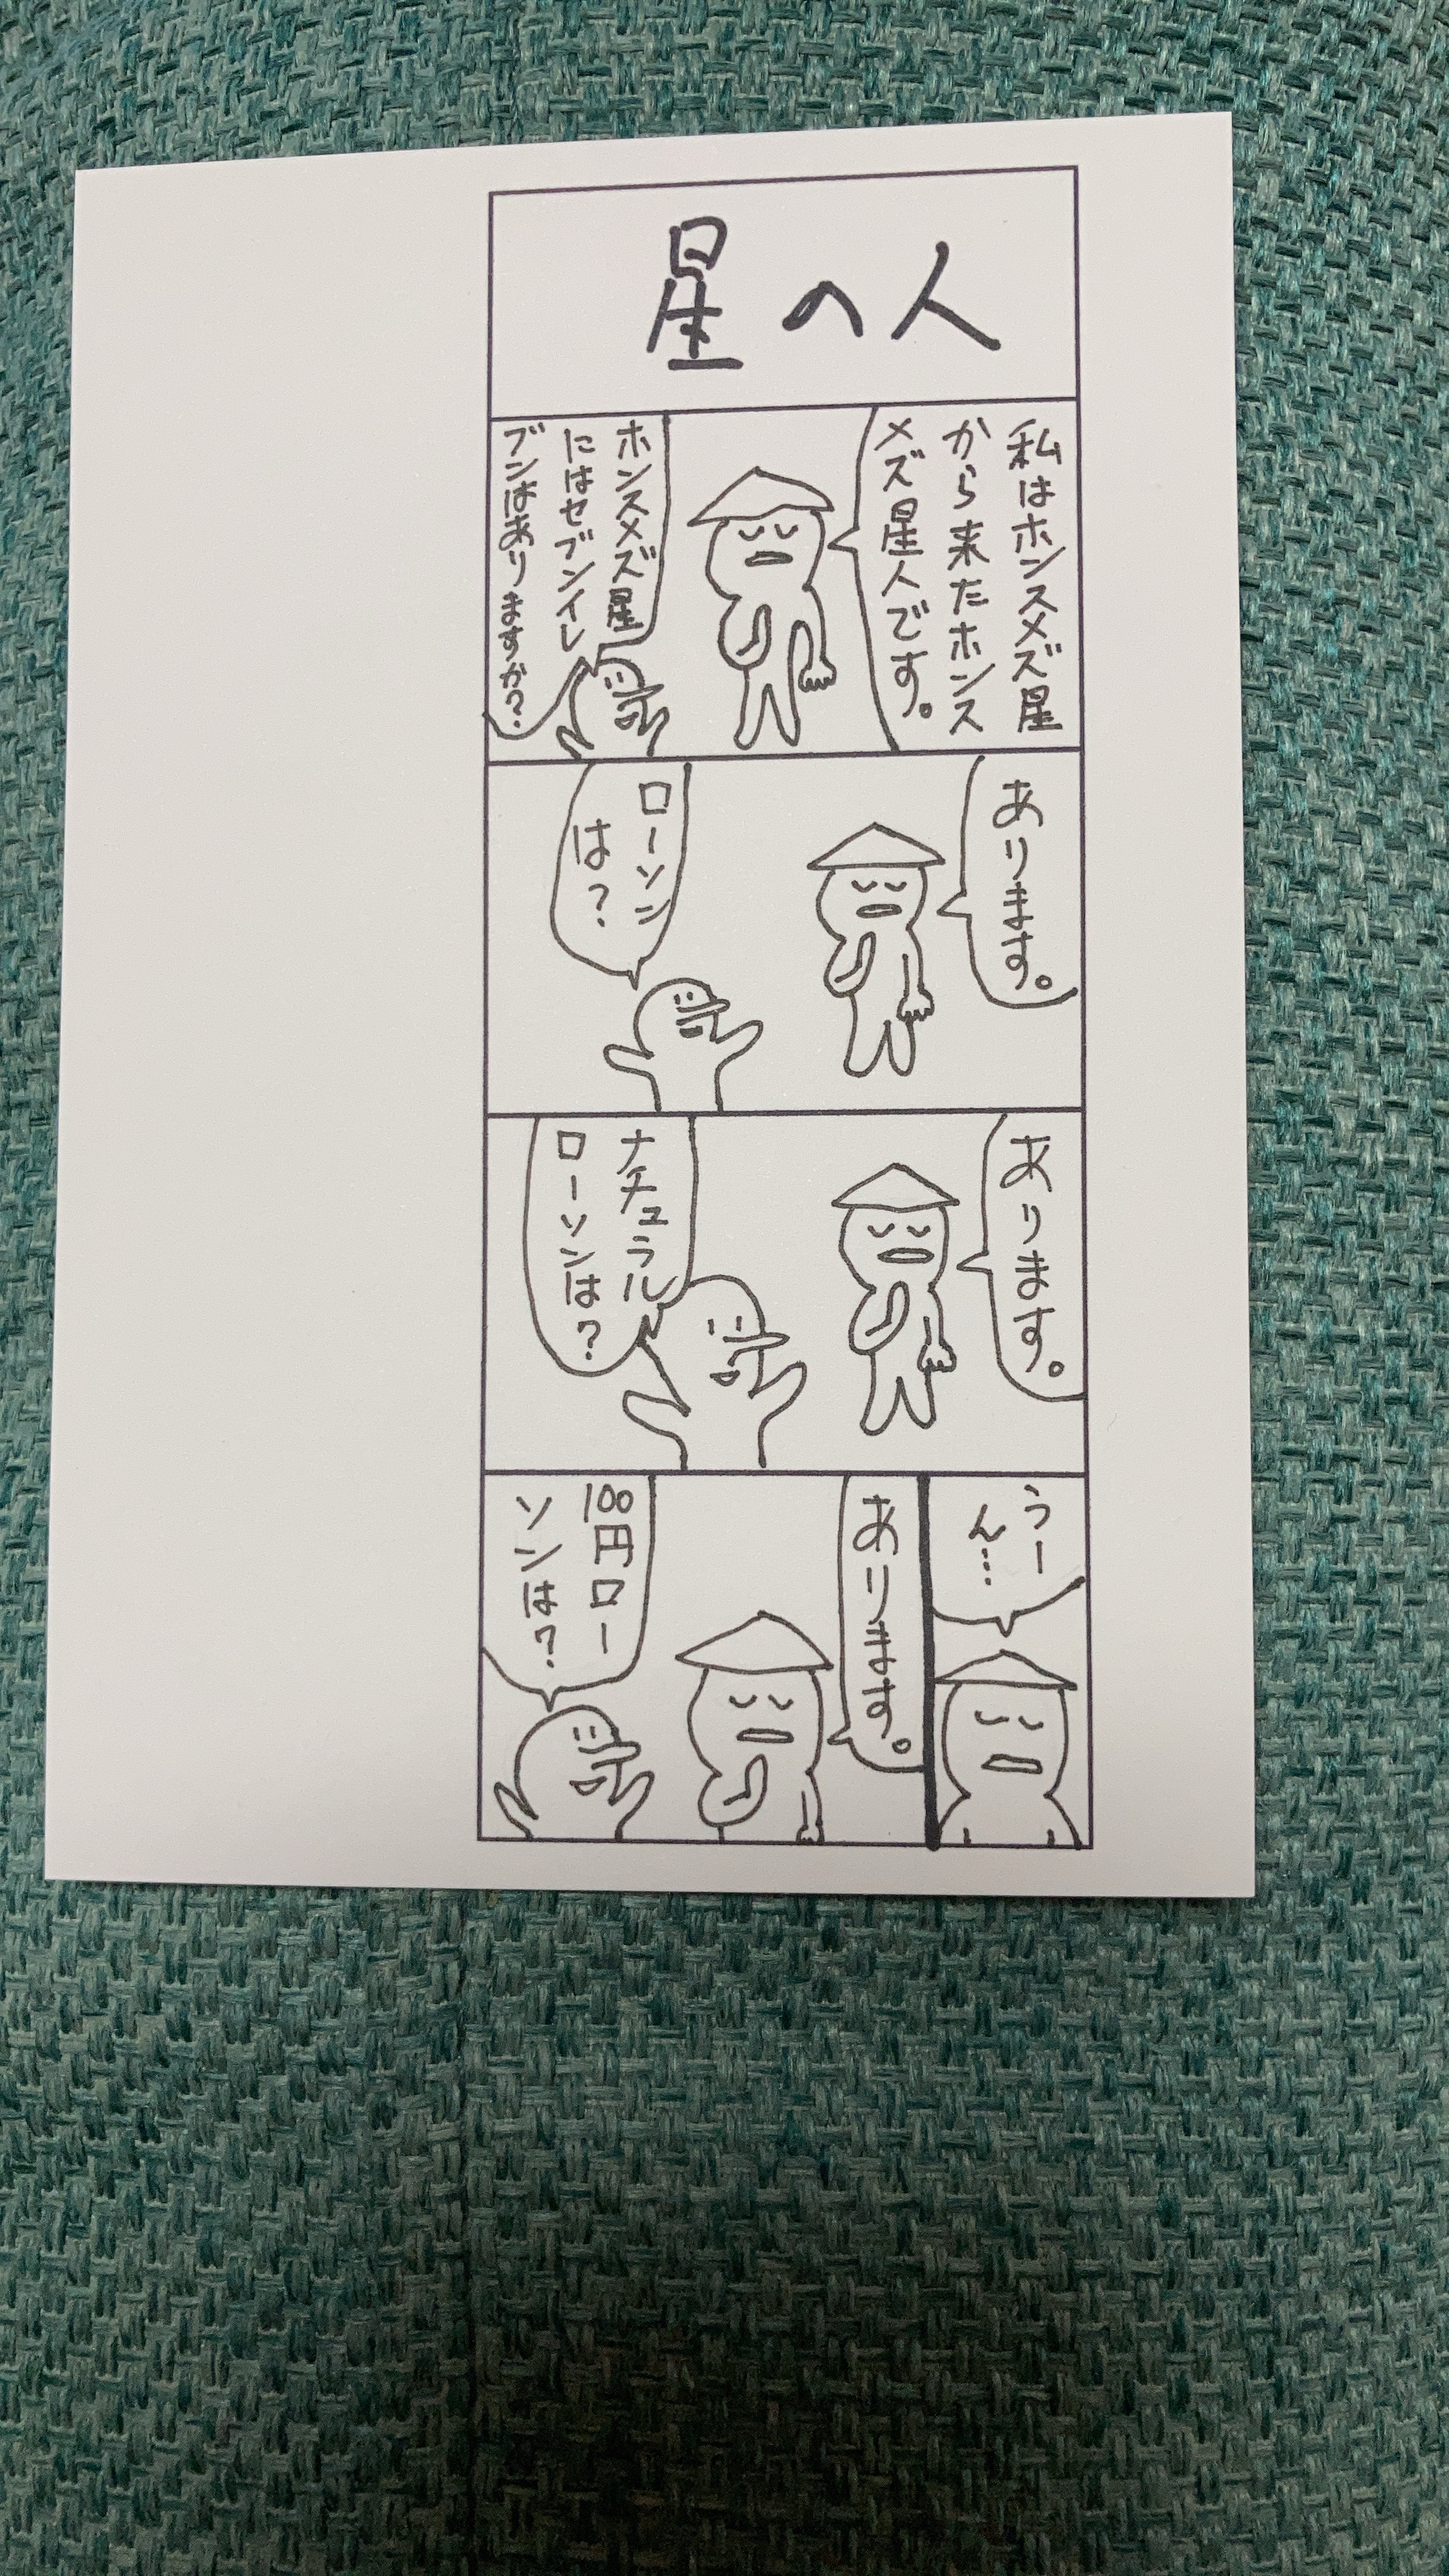 星の人
私はホンスメズ星
から来たホンス
メズ星人です。
ホンスメズ星
にはセブンイレ
ブンはありますか?
あります。
ローソン
は?
あります。
ナチュラル
ローソンは?
うー
ん…
あります。
100円ロー
ソンは?